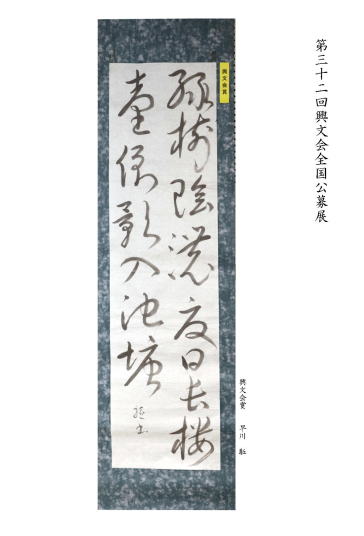 第三十二回興文会全国公募展
興文会賞
緑樹陰濃夏日長楼
台倒影入池塘
興文会賞 早川